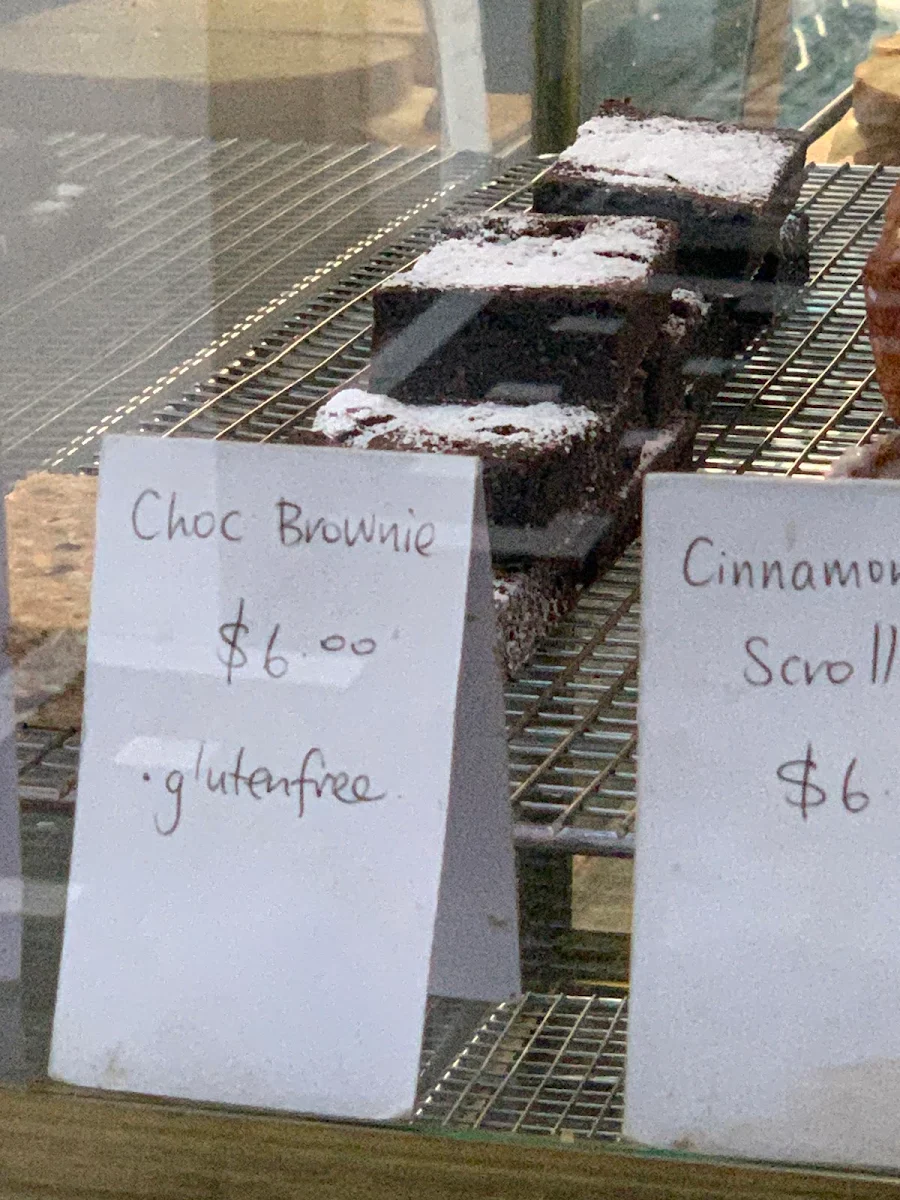 Choc Brownie
$6.00
·glutenfree
Cinnamon
Scroll
$6.